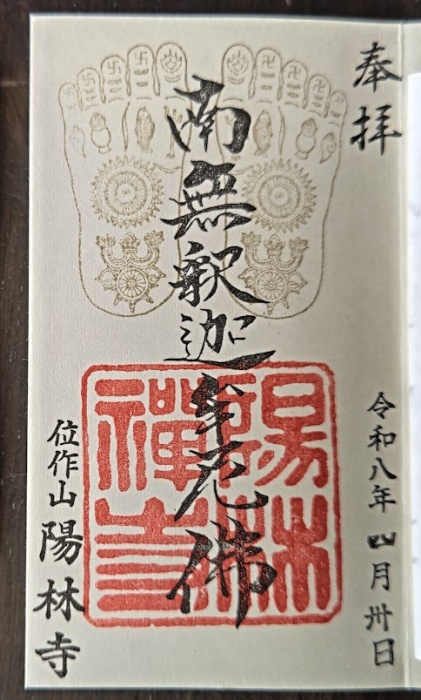 奉拝
令和八年 四月卅日
南無釈迦牟尼佛
陽林禅寺
位作山 陽林寺